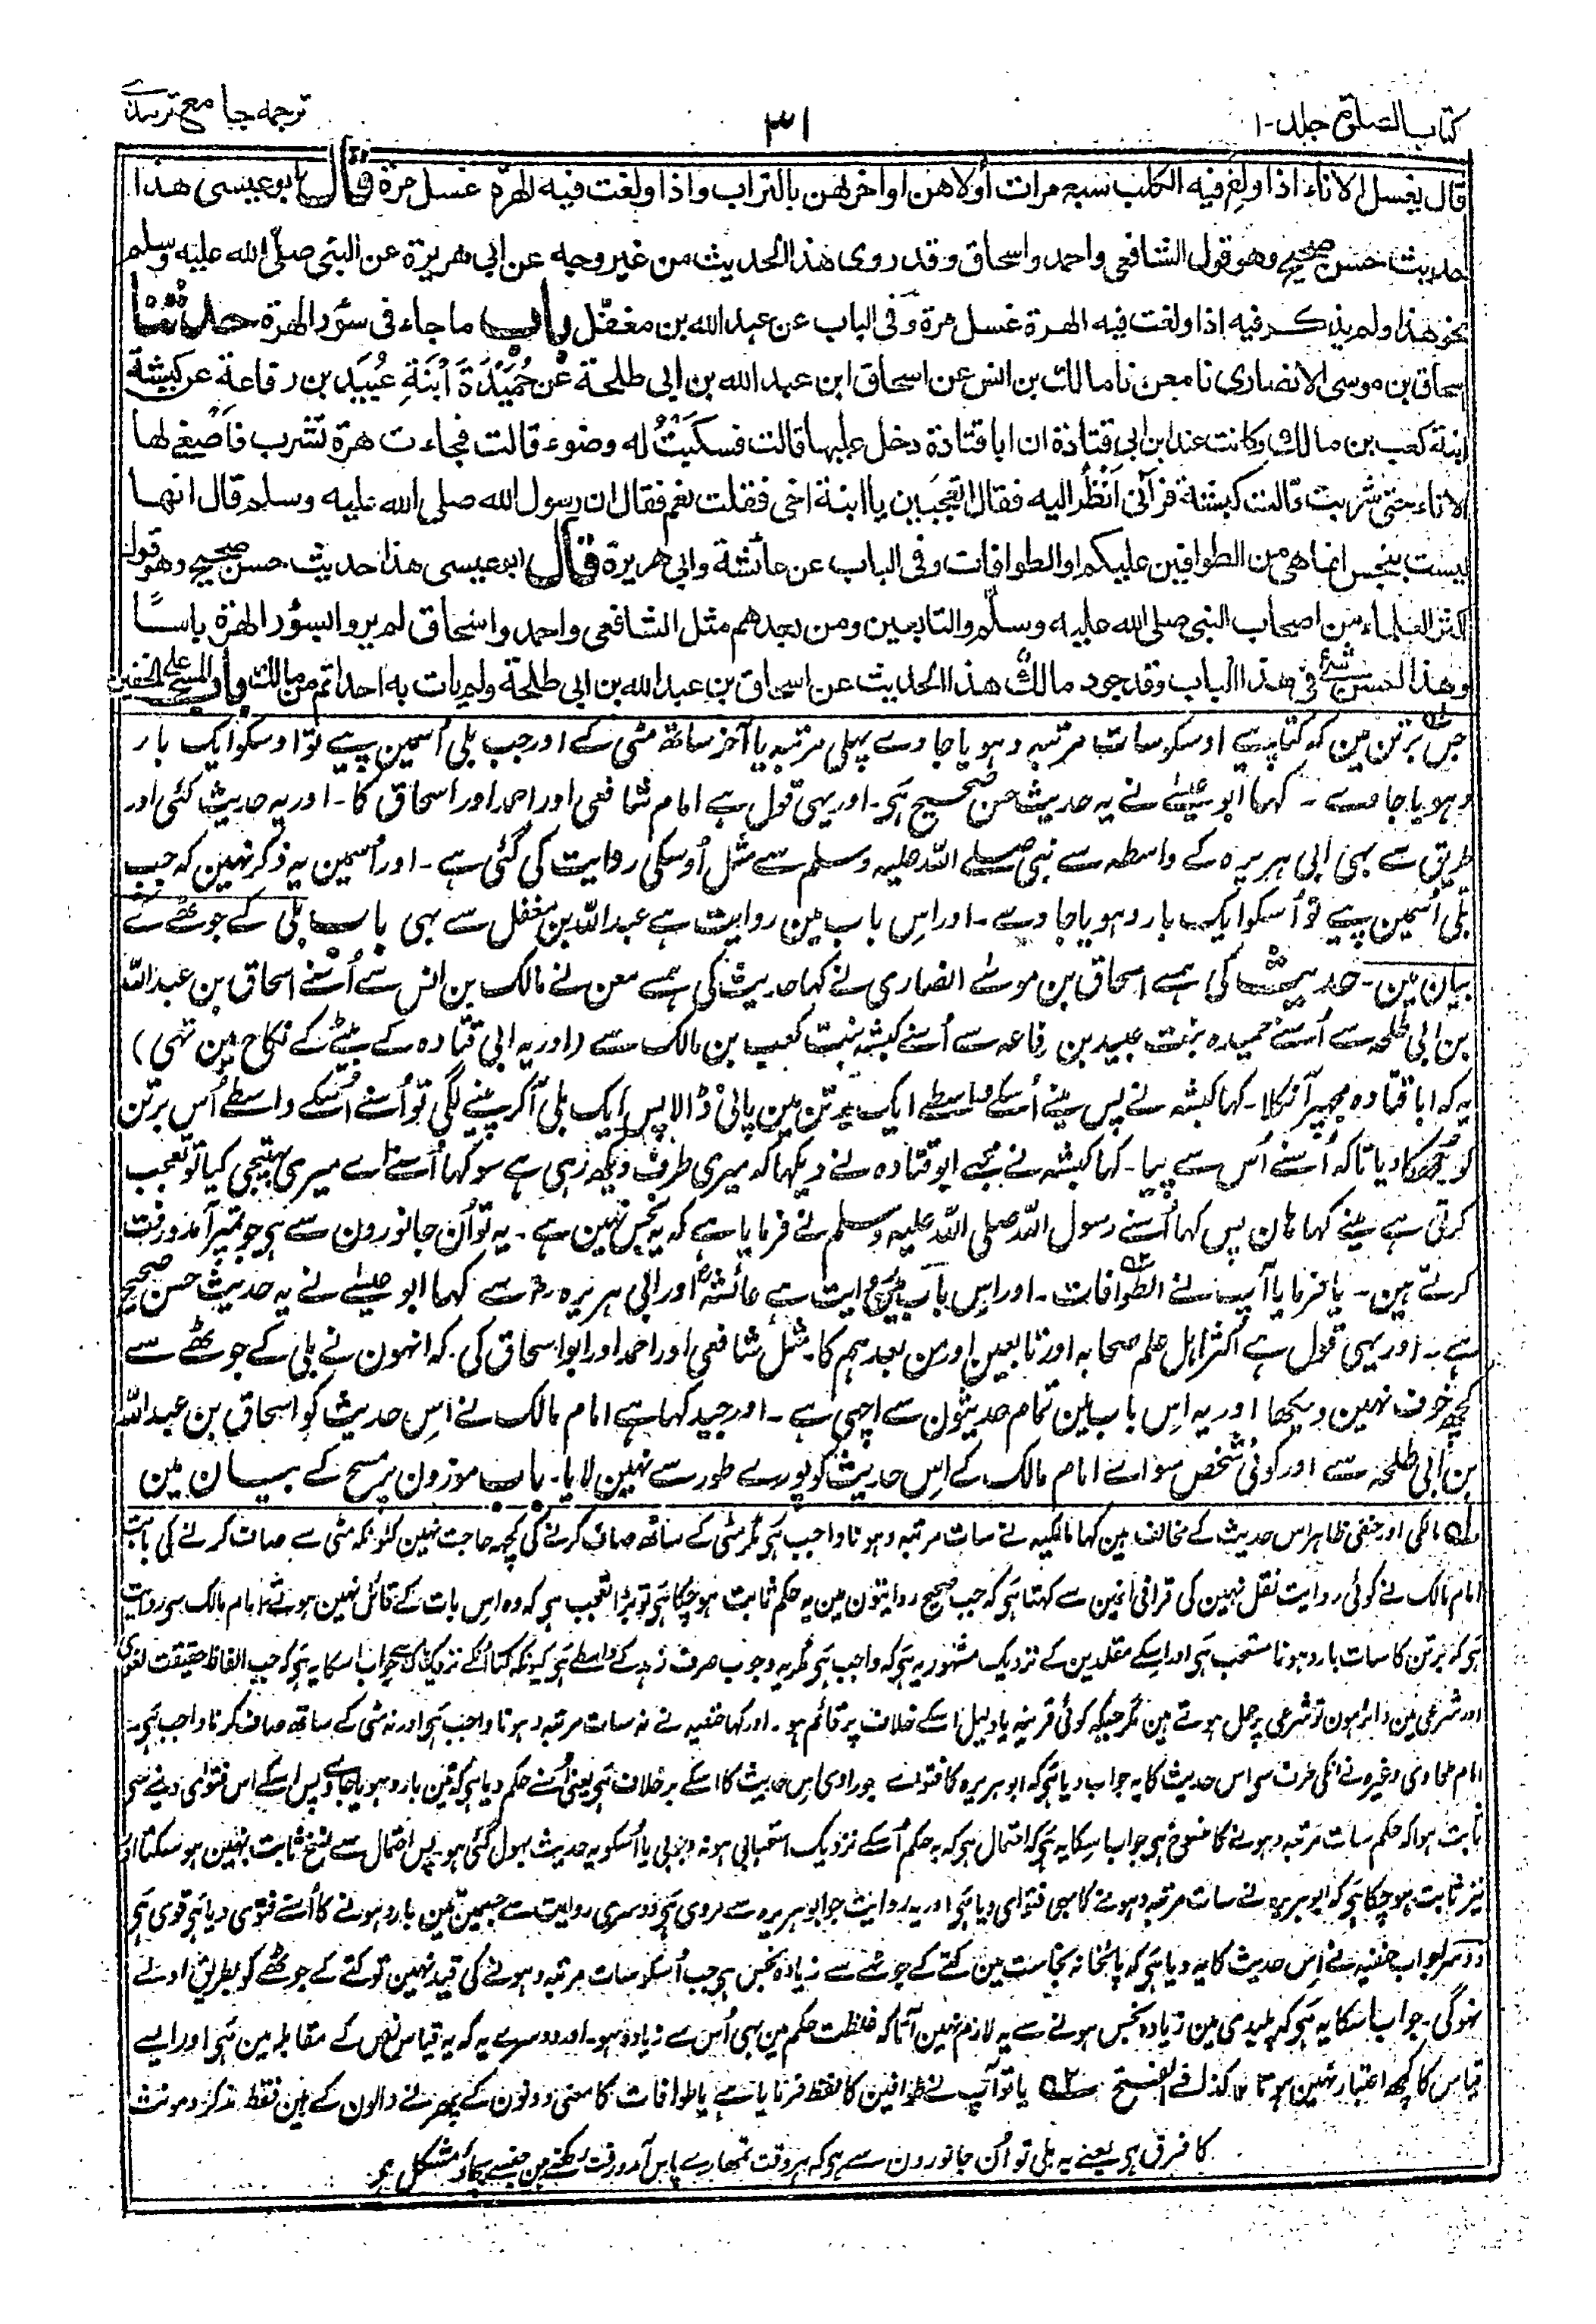 کتاب الصلوة جلد-۱
۳۱
ترجمہ جامع ترمذی
قال یغسل الاناء اذا ولغ فیه الکلب سبع مرات أولاهن او اخرهن بالتراب واذا ولغت فیه الهرة غسل مرة قال ابو عیسی هذا
حدیث حسن صحیح وهو قول الشافعی واحمد واسحاق وقد روی هذا الحدیث من غیر وجه عن ابی هریرة عن النبی صلی الله علیه وسلم
نحو هذا ولم یذکر فیه اذا ولغت فیه الهرة غسل مرة وفی الباب عن عبد الله بن مغفل باب ما جاء فی سؤر الهرة حدثنا
اسحاق بن موسی الانصاری نا معن نا مالک بن انس عن اسحاق ابن عبد الله بن ابی طلحة عن حُمَیْدَةَ اُبنَةِ عُبَیدِ بن رفاعة عن کبشة
ابنة کعب بن مالک وکانت عند ابن ابی قتادة ان ابا قتادة دخل علیها قالت فسکبتُ له وضوء قالت فجاءت هرة تشرب فاَصغی لها
الاناء حتی شربت قالت کبشة فرآنی اَنْظُر الیه فقال اتعجبین یا ابنة اخی فقلت نعم فقال ان رسول الله صلی الله علیه وسلم قال انها
لیست بنجس انما هی من الطوافین علیکم او الطوافات وفی الباب عن عائشة وابی هریرة قال ابو عیسی هذا حدیث حسن صحیح وهو قول
اکثر العلماء من اصحاب النبی صلی الله علیه وسلم والتابعین ومن بعدهم مثل الشافعی واحمد واسحاق لم یروا بسؤر الهرة باسًا
وهذا احسن شئ فی هذا الباب وقد جود مالکٌ هذا الحدیث عن اسحاق بن عبد الله بن ابی طلحة ولم یات به احد اتم من مالک باب المسح علی الخفین
جس برتن مین کہ کتا پیے اوسکو سات مرتبہ دہویا جاوے پہلی مرتبہ یا آخر ساتھ مٹی کے اور جب بلی اُسمین پیے تو اوسکو ایک بار
دہویا جاوے ۔ کہا ابو عیسٰے نے یہ حدیث حسن صحیح ہَی ۔ اور یہی قول ہے امام شافعی اور احمد اور اسحاق کا ۔ اور یہ حدیث کئی اور
طریق سے بہی ابی ہریرہ کے واسطہ سے نبی صلے اللہ علیہ وسلم سے مثل اُوسکی روایت کی گئی ہے ۔ اور اُسمین یہ ذکر نہین کہ جب
بلی اُسمین پیے تو اُسکو ایک بار دہویا جاوے ۔ اور اِس باب مین روایت ہے عبداللہ بن مغفل سے بہی باب بلی کے جوٹھے کے
بیان مین ۔ حدیث کی ہمسے اسحاق بن موسٰے انصاری نے کہا حدیث کی ہمسے معن نے مالک بن انس سے اُسنے اسحاق بن عبداللہ
بن ابی طلحہ سے اُسنے حمیدہ بنت عبید بن رفاعہ سے اُسنے کبشہ بنت کعب بن مالک سے (اور یہ ابی قتادہ کے بیٹے کے نکاح مین تہی)
یہ کہ ابا قتادہ مجھپر آ نکلا ۔ کہا کبشہ نے پس مینے اُسکے واسطے ایک برتن مین پانی ڈالا پس ایک بلی آکر پینے لگی تو اُسنے اُسکے واسطے اُس برتن
کو جُھکا دیا تاکہ اُسنے اُس سے پیا ۔ کہا کبشہ نے مجھے ابو قتادہ نے دیکہا کہ میری طرف دیکھ رہی ہے سو کہا اُسنے اے میری بہتیجی کیا تو تعجب
کرتی ہے مینے کہا ہان پس کہا اُسنے رسول اللہ صلی اللہ علیہ وسلم نے فرمایا ہے کہ یہ نجس نہین ہے ۔ یہ تو اُن جانورون سے ہی جو تمپر آمد و رفت
کرتے ہین ۔ یا فرمایا آپ نے الطوافات ۔ اور اِس باب مین روایت ہے عائشہ اور ابی ہریرہ سے کہا ابو عیسٰے نے یہ حدیث حسن صحیح
ہے ۔ اور یہی قول ہے اکثر اہل علم صحابہ اور تابعین اور من بعدہم کا ۔ مثل شافعی اور احمد اور ابو اسحاق کی ۔ کہ انہون نے بلی کے جوٹھے سے
کچھ خوف نہین دیکھا اور یہ اِس باب مین تمام حدیثون سے اچہی ہے ۔ اور جید کہا ہے امام مالک نے اِس حدیث کو اسحاق بن عبداللہ
بن ابی طلحہ سے اور کوئی شخص سوائے امام مالک کے اِس حدیث کو پورے طور سے نہین لایا ۔ باب موزون پر مسح کے بیان مین
ف۱ مالکی اور حنفی ظاہر اس حدیث کے مخالف ہین کہا مالکیہ نے سات مرتبہ دہونا واجب ہَی مگر مٹی کے ساتھ صاف کرنے کی کچہ حاجت نہین کیونکہ مٹی سے صاف کرنے کی بابت
امام مالک نے کوئی روایت نقل نہین کی قرافی انمین سے کہتا ہَی کہ جب صحیح روایتون مین یہ حکم ثابت ہوچکا ہَی تو بڑا تعجب ہی کہ وہ اس بات کے قائل نہین ہوتے امام مالک سی روایت
ہَی کہ برتن کا سات بار دہونا مستحب ہَی اور اسکے مقلدین کے نزدیک مشہور یہ ہَی کہ واجب ہَی مگر یہ وجوب صرف کے واسطے ہَی کیونکہ کتا انکے نزدیک جواب اسکا یہ ہَی کہ جب الفاظ حقیقت لغوی
اور شرعی مین دائر ہون تو شرعی پر حمل ہوتے ہین مگر جبکہ کوئی قرینہ یا دلیل اسکے خلاف پر قائم ہو ۔ اور کہا حنفیہ نے نہ سات مرتبہ دہونا واجب ہَی اور نہ مٹی کے ساتھ صاف کرنا واجب ہَی ۔
امام طحاوی وغیرہ نے انکی طرف سی اس حدیث کا یہ جواب دیا ہَی کہ ابو ہریرہ کا فتوے جو راوی اس حدیث کا اسکے برخلاف ہَی یعنی اُسنے حکم دیا ہَی کہ تین بار دہویا جاوے پس اسکے اس فتوٰی دینے سی
ثابت ہوا کہ حکم سات مرتبہ دہونے کا منسوخ ہی جواب اسکا یہ ہَی کہ احتمال ہی کہ یہ حکم اُسکے نزدیک استحبابی ہو نہ وجوبی یا اُسکو یہ حدیث بہول گئی ہو ۔ پس احتمال سے نسخ ثابت نہین ہو سکتا اور
نیز ثابت ہوچکا ہَی کہ ابو ہریرہ نے سات مرتبہ دہونے کا بہی فتوٰی دیا ہَی اور یہ روایت جو ابو ہریرہ سے مروی ہَی دوسری روایت سے جسمین تین بار دہونے کا اُسنے فتوٰی دیا ہَی قوی ہَی
دوسرا جواب حنفیہ نے اِس حدیث کا یہ دیا ہَی کہ پائخانہ نجاست مین کتے کے جوٹھے سے زیادہ نجس ہی جب اُسکو سات مرتبہ دہونے کی قید نہین تو کتے کے جوٹھے کو بطریق اولے
نہوگی ۔ جواب اسکا یہ ہَی کہ پلیدی مین زیادہ نجس ہونے سے یہ لازم نہین آتا کہ غلظت حکم مین بہی اُس سے زیادہ ہو ۔ اور دوسرے یہ کہ یہ قیاس نص کے مقابلہ مین ہَی اور ایسے
قیاس کا کچھ اعتبار نہین ہوتا ۱۲ کذا فے الفتح ف۲ یا تو آپ نے طوافین کا لفظ فرمایا ہے یا طوافات کا معنی دونون کے پھرنے والون کے ہین فقط مذکر و مونث
کا فرق ہی یعنے یہ بلی تو اُن جانورون سے ہی کہ ہر وقت تمھارے پاس آمد و رفت رکھتے ہین جنسے بچاؤ مشکل ہے